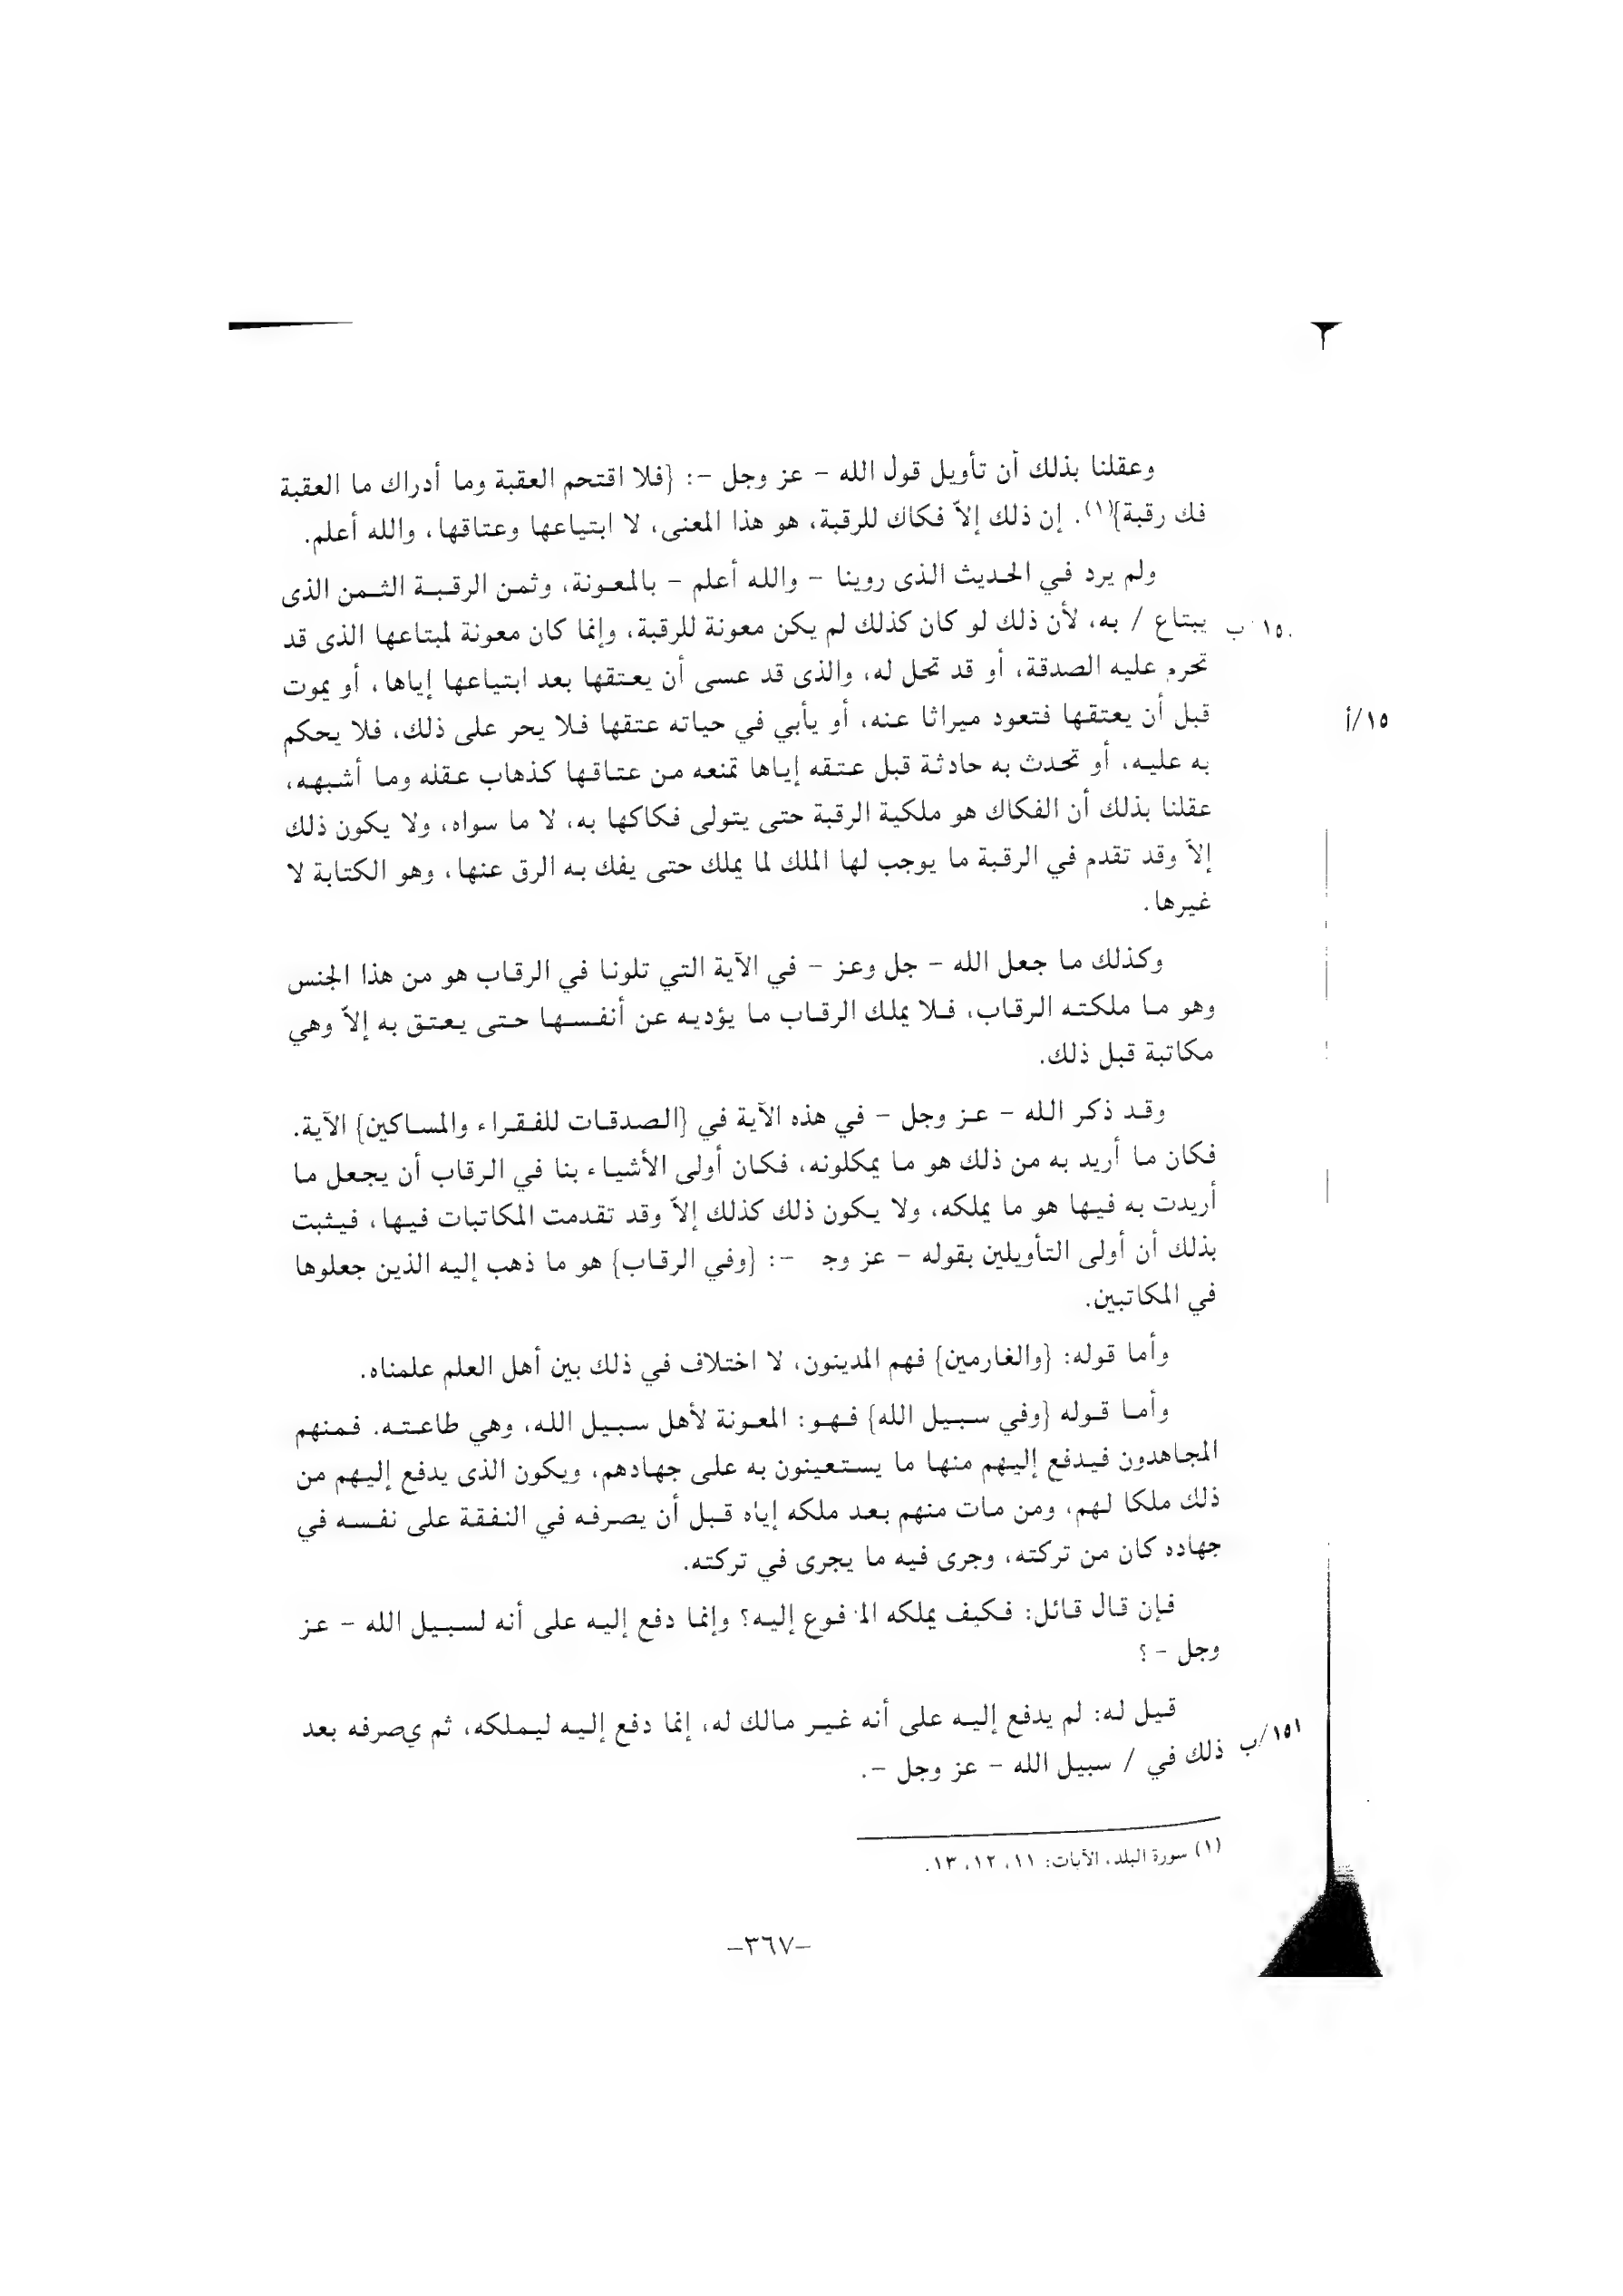 وعقلنا بذلك أن تأويل قول الله - عز وجل -: {فلا اقتحم العقبة وما أدراك ما العقبة
فك رقبة}(١). إن ذلك إلاّ فكاك للرقبة، هو هذا المعنى، لا ابتياعها وعتاقها، والله أعلم.
ولم يرد في الحديث الذى روينا - والله أعلم - بالمعونة، وثمن الرقبة الثمن الذى
يبتاع / به، لأن ذلك لو كان كذلك لم يكن معونة للرقبة، وإنما كان معونة لمبتاعها الذى قد
تحرم عليه الصدقة، أو قد تحل له، والذى قد عسى أن يعتقها بعد ابتياعها إياها، أو يموت
قبل أن يعتقها فتعود ميراثا عنه، أو يأبي في حياته عتقها فلا يحر على ذلك، فلا يحكم
١٥/أ
به عليه، أو تحدث به حادثة قبل عتقه إياها تمنعه من عتاقها كذهاب عقله وما أشبهه،
عقلنا بذلك أن الفكاك هو ملكية الرقبة حتى يتولى فكاكها به، لا ما سواه، ولا يكون ذلك
إلاّ وقد تقدم في الرقبة ما يوجب لها الملك لما يملك حتى يفك به الرق عنها، وهو الكتابة لا
غيرها.
وكذلك ما جعل الله - جل وعز - في الآية التي تلونا في الرقاب هو من هذا الجنس
وهو ما ملكته الرقاب، فلا يملك الرقاب ما يؤديه عن أنفسها حتى يعتق به إلاّ وهي
مكاتبة قبل ذلك.
وقد ذكر الله - عز وجل - في هذه الآية في {الصدقات للفقراء والمساكين} الآية.
فكان ما أريد به من ذلك هو ما يمكلونه، فكان أولى الأشياء بنا في الرقاب أن يجعل ما
أريدت به فيها هو ما يملكه، ولا يكون ذلك كذلك إلاّ وقد تقدمت المكاتبات فيها، فيثبت
بذلك أن أولى التأويلين بقوله - عز وجـ -: {وفي الرقاب} هو ما ذهب إليه الذين جعلوها
في المكاتبين.
وأما قوله: {والغارمين} فهم المدينون، لا اختلاف في ذلك بين أهل العلم علمناه.
وأما قوله {وفي سبيل الله} فهو: المعونة لأهل سبيل الله، وهي طاعته. فمنهم
المجاهدون فيدفع إليهم منها ما يستعينون به على جهادهم، ويكون الذى يدفع إليهم من
ذلك ملكا لهم، ومن مات منهم بعد ملكه إياه قبل أن يصرفه في النفقة على نفسه في
جهاده كان من تركته، وجرى فيه ما يجرى في تركته.
فإن قال قائل: فكيف يملكه المدفوع إليه؟ وإنما دفع إليه على أنه لسبيل الله - عز
وجل - ؟
قيل له: لم يدفع إليه على أنه غير مالك له، إنما دفع إليه ليملكه، ثم يصرفه بعد
١٥١/ب ذلك في / سبيل الله - عز وجل -.
(١) سورة البلد، الآيات: ١١، ١٢، ١٣.
-٣٦٧-